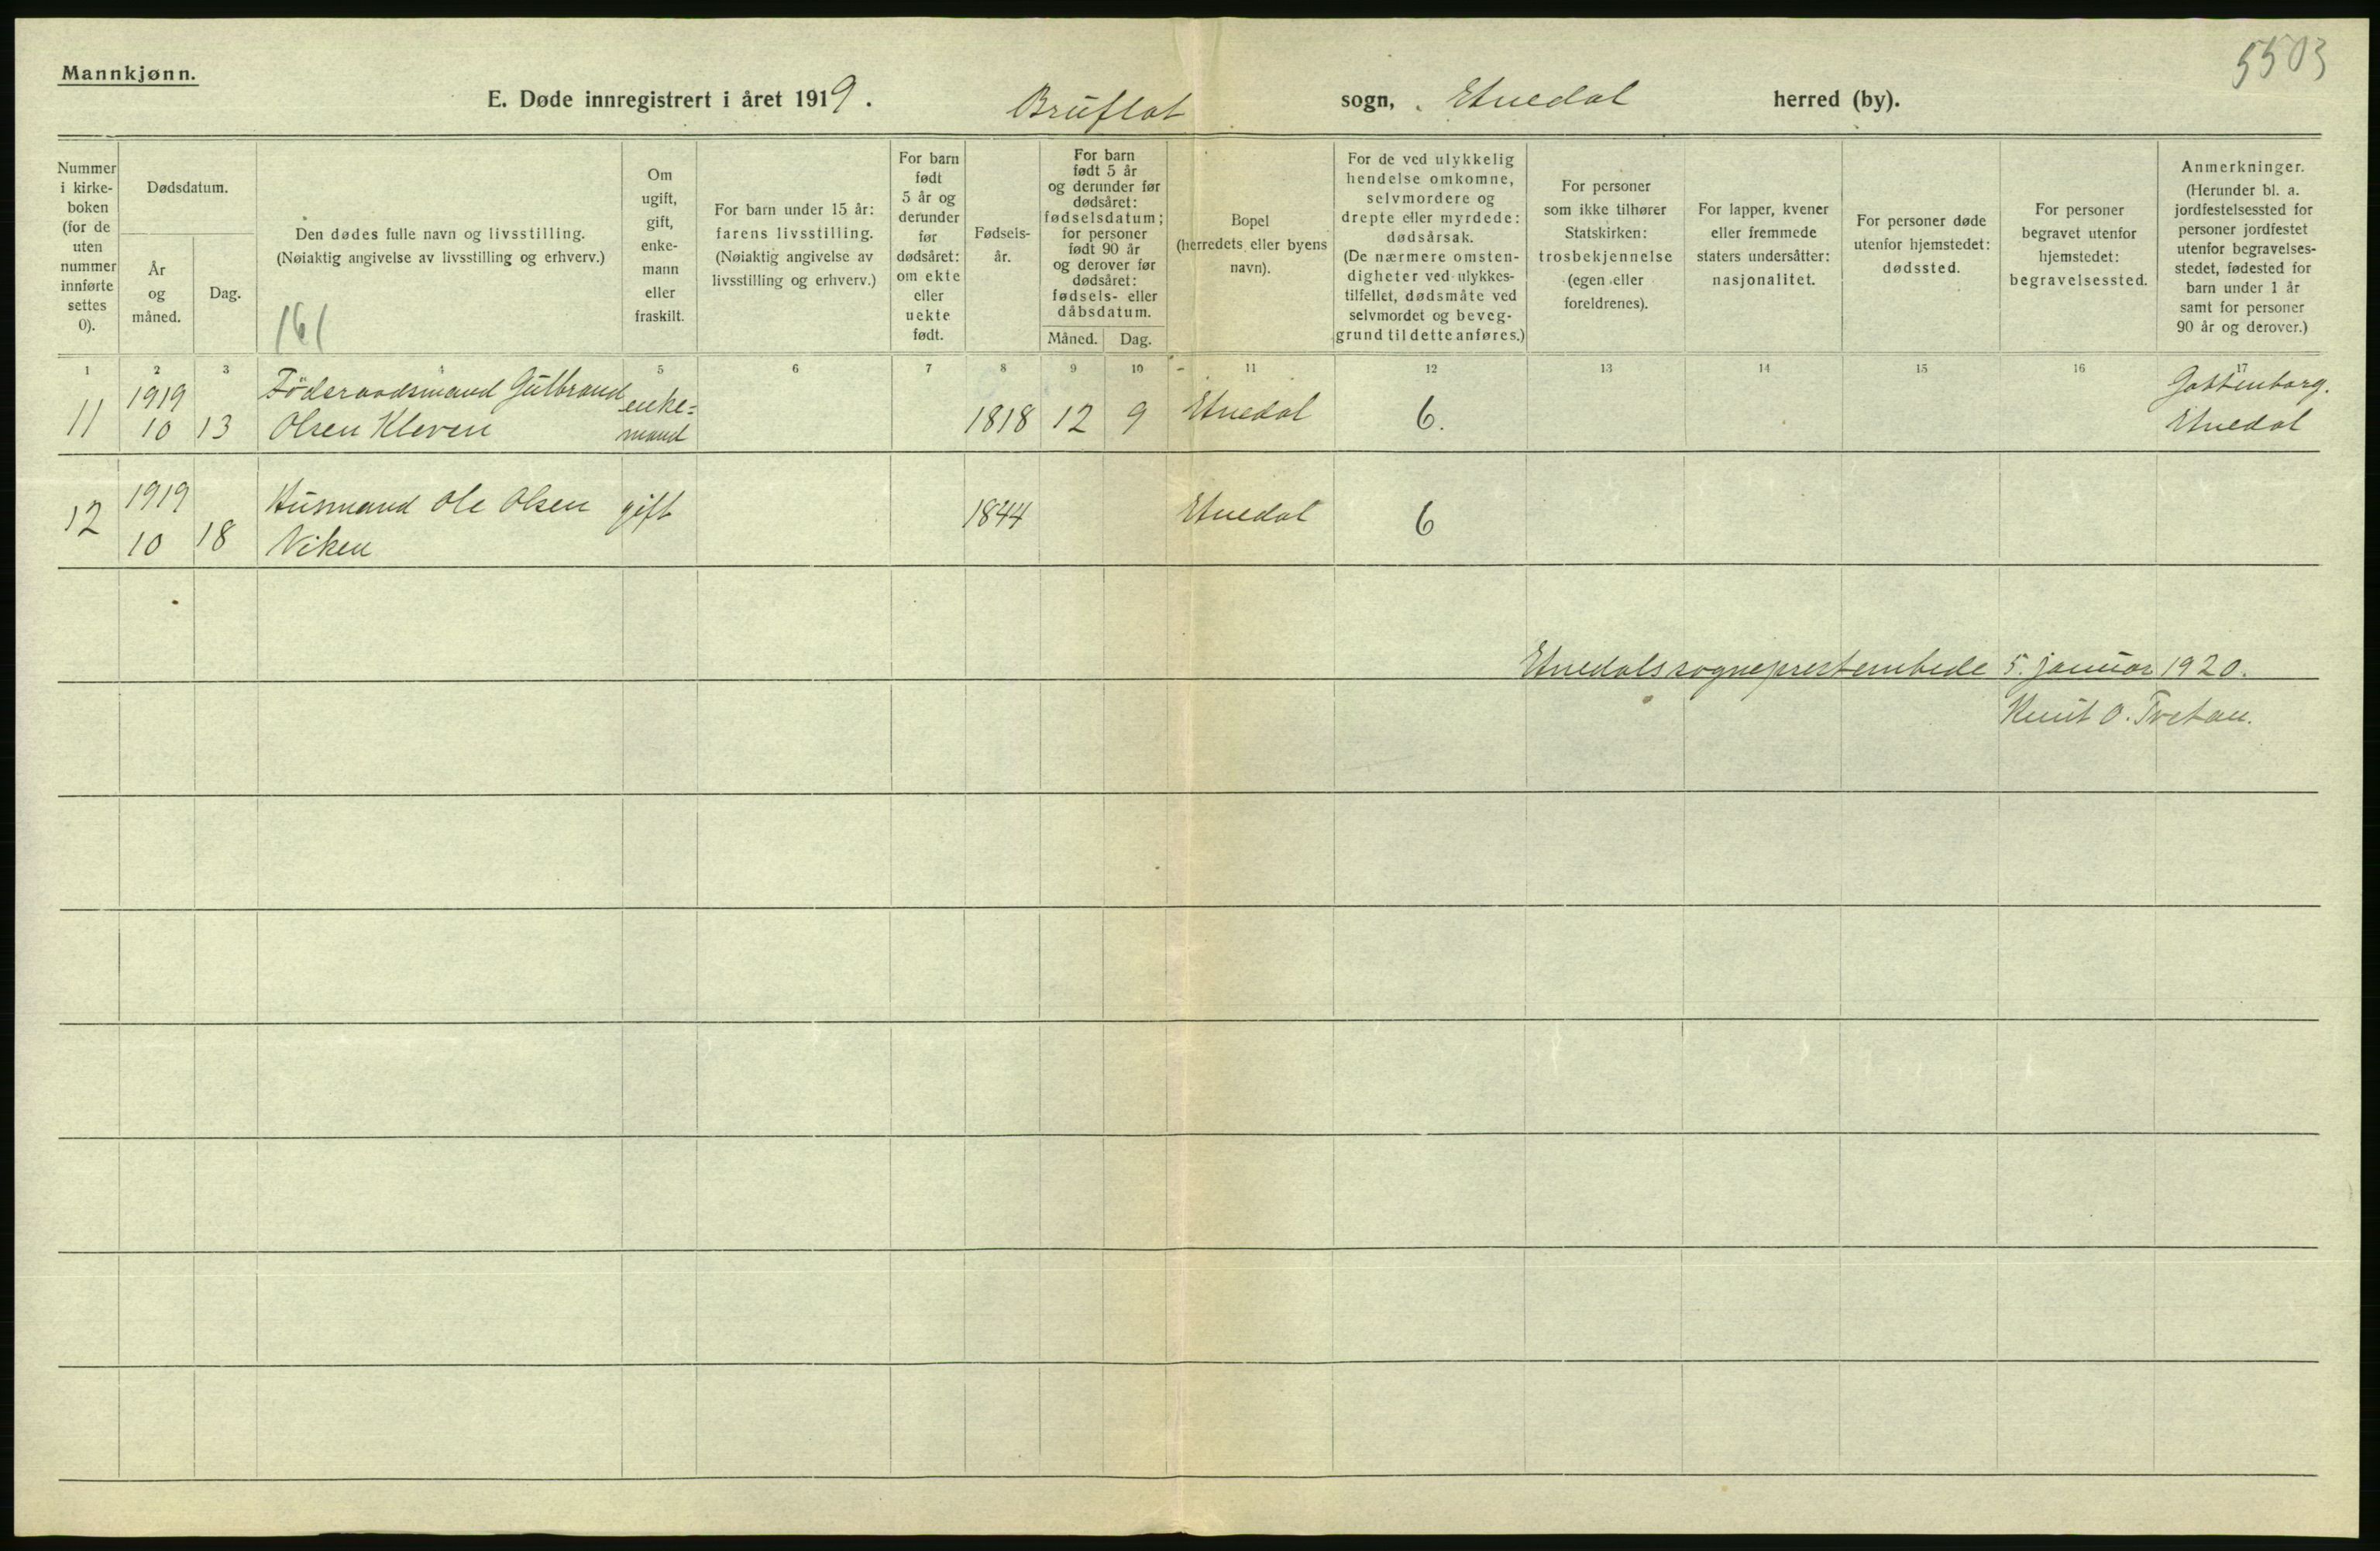 5503
Mannkjønn.
E. Døde innregistrert i året 1919. Bruflat sogn, Etnedal herred (by).
Nummer
i kirke-
boken
(for de
uten
nummer
innførte
settes
0).
Dødsdatum.
År
og
måned.
Dag.
Den dødes fulle navn og livsstilling.
(Nøiaktig angivelse av livsstilling og erhverv.)
161
Om
ugift,
gift,
enke-
mann
eller
fraskilt.
For barn under 15 år:
farens livsstilling.
(Nøiaktig angivelse av
livsstilling og erhverv.)
For barn
født
5 år og
derunder
før
dødsåret:
om ekte
eller
uekte
født.
Fødsels-
år.
For barn
født 5 år
og derunder før
dødsåret:
fødselsdatum;
for personer
født 90 år
og derover før
dødsåret:
fødsels- eller
dåbsdatum.
Måned. Dag.
Bopel
(herredets eller byens
navn).
For de ved ulykkelig
hendelse omkomne,
selvmordere og
drepte eller myrdede:
dødsårsak.
(De nærmere omsten-
digheter ved ulykkes-
tilfellet, dødsmåte ved
selvmordet og beveg-
grund til dette anføres.)
For personer
som ikke tilhører
Statskirken:
trosbekjennelse
(egen eller
foreldrenes).
For lapper, kvener
eller fremmede
staters undersåtter:
nasjonalitet.
For personer døde
utenfor hjemstedet:
dødssted.
For personer
begravet utenfor
hjemstedet:
begravelsessted.
Anmerkninger.
(Herunder bl. a.
jordfestelsessted for
personer jordfestet
utenfor begravelses-
stedet, fødested for
barn under 1 år
samt for personer
90 år og derover.)
1 2 3 4 5 6 7 8 9 10 11 12 13 14 15 16 17
1919 Föderaadsmand Gulbrand enke= Gottenborg.
11 10 13 Olsen Kleven mand 1818 12 9 Etnedal 6. Etnedal
1919 Husmand Ole Olsen gift 1844 Etnedal 6
12 10 18 Viken
Etnedals sogneprestembede 5. januar 1920.
Knut O. Tvetan.